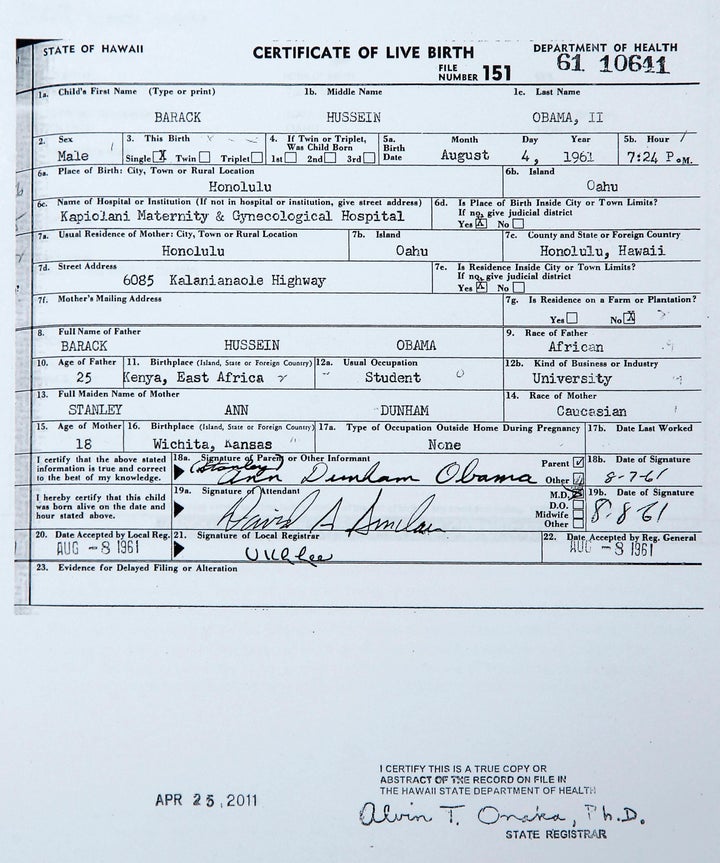 STATE OF HAWAII CERTIFICATE OF LIVE BIRTH DEPARTMENT OF HEALTH
FILE NUMBER 151 61 10641
1a. Child's First Name (Type or print) 1b. Middle Name 1c. Last Name
BARACK HUSSEIN OBAMA, II
2. Sex 3. This Birth 4. If Twin or Triplet, Was Child Born 5a. Birth Date Month Day Year 5b. Hour
Male Single X Twin Triplet 1st 2nd 3rd August 4, 1961 7:24 P.M.
6a. Place of Birth: City, Town or Rural Location 6b. Island
Honolulu Oahu
6c. Name of Hospital or Institution (If not in hospital or institution, give street address) 6d. Is Place of Birth Inside City or Town Limits? If no, give judicial district
Kapiolani Maternity & Gynecological Hospital Yes X No
7a. Usual Residence of Mother: City, Town or Rural Location 7b. Island 7c. County and State or Foreign Country
Honolulu Oahu Honolulu, Hawaii
7d. Street Address 7e. Is Residence Inside City or Town Limits? If no, give judicial district
6085 Kalanianaole Highway Yes X No
7f. Mother's Mailing Address 7g. Is Residence on a Farm or Plantation?
Yes No X
8. Full Name of Father 9. Race of Father
BARACK HUSSEIN OBAMA African
10. Age of Father 11. Birthplace (Island, State or Foreign Country) 12a. Usual Occupation 12b. Kind of Business or Industry
25 Kenya, East Africa Student University
13. Full Maiden Name of Mother 14. Race of Mother
STANLEY ANN DUNHAM Caucasian
15. Age of Mother 16. Birthplace (Island, State or Foreign Country) 17a. Type of Occupation Outside Home During Pregnancy 17b. Date Last Worked
18 Wichita, Kansas None
I certify that the above stated information is true and correct to the best of my knowledge. 18a. Signature of Parent or Other Informant Parent Other 18b. Date of Signature
(Stanley) Ann Dunham Obama 8-7-61
I hereby certify that this child was born alive on the date and hour stated above. 19a. Signature of Attendant M.D. D.O. Midwife Other 19b. Date of Signature
David A Sinclair 8-8-61
20. Date Accepted by Local Reg. 21. Signature of Local Registrar 22. Date Accepted by Reg. General
AUG -8 1961 UKLee AUG -8 1961
23. Evidence for Delayed Filing or Alteration
I CERTIFY THIS IS A TRUE COPY OR
ABSTRACT OF THE RECORD ON FILE IN
THE HAWAII STATE DEPARTMENT OF HEALTH
APR 25, 2011
Alvin T. Onaka, Ph.D.
STATE REGISTRAR